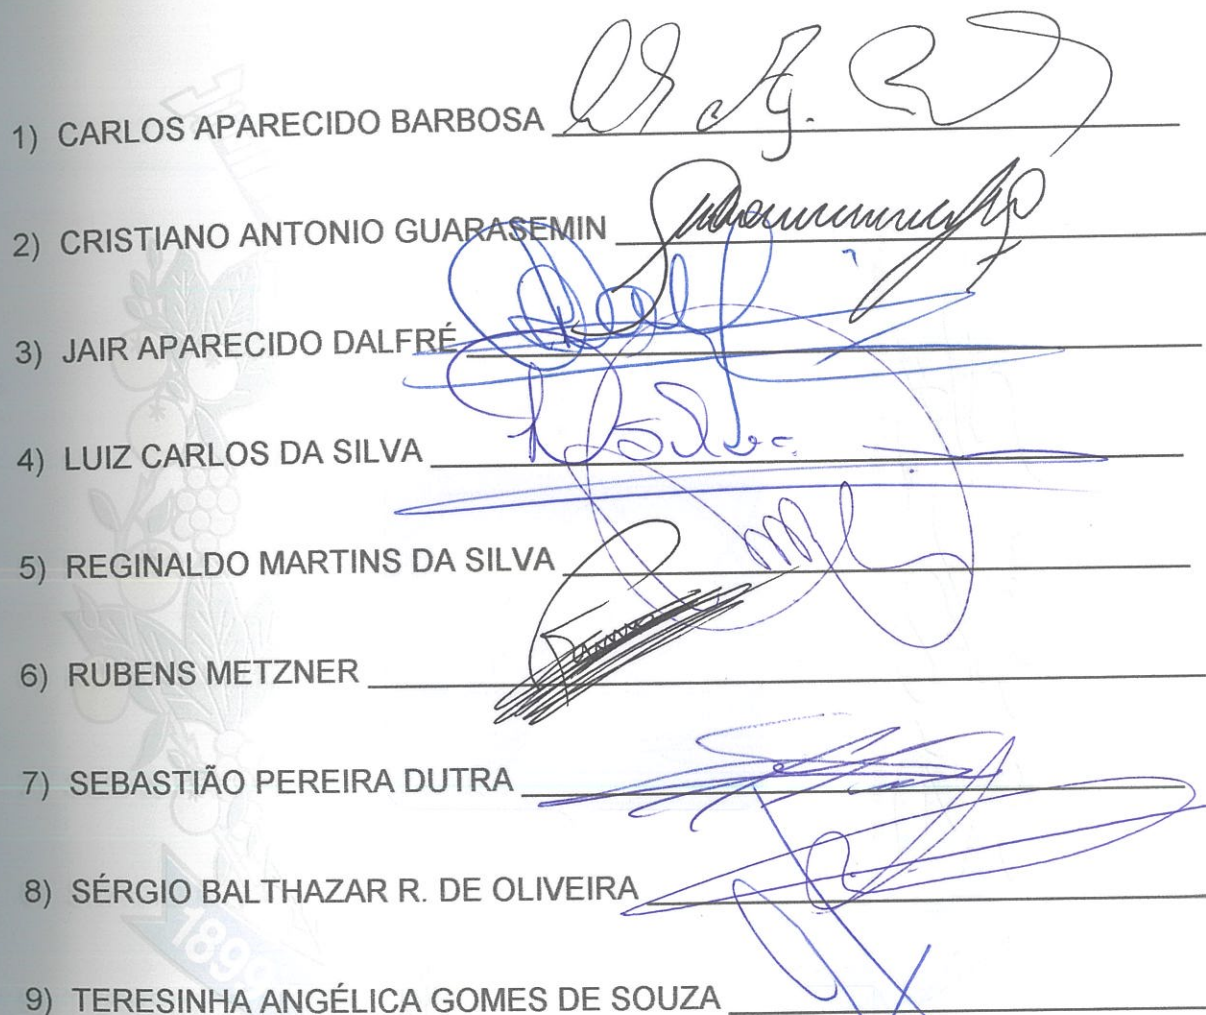 1) CARLOS APARECIDO BARBOSA
2) CRISTIANO ANTONIO GUARASEMIN
3) JAIR APARECIDO DALFRÉ
4) LUIZ CARLOS DA SILVA
5) REGINALDO MARTINS DA SILVA
6) RUBENS METZNER
7) SEBASTIÃO PEREIRA DUTRA
8) SÉRGIO BALTHAZAR R. DE OLIVEIRA
9) TERESINHA ANGÉLICA GOMES DE SOUZA